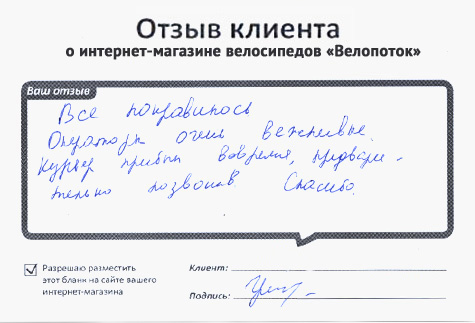 Отзыв клиента
о интернет-магазине велосипедов «Велопоток»
Ваш отзыв
Все понравилось
Операторы очень вежливые.
Курьер прибыл вовремя, предвари-
тельно позвонив Спасибо.
Разрешаю разместить
этот бланк на сайте вашего
интернет-магазина
Клиент:
Подпись: